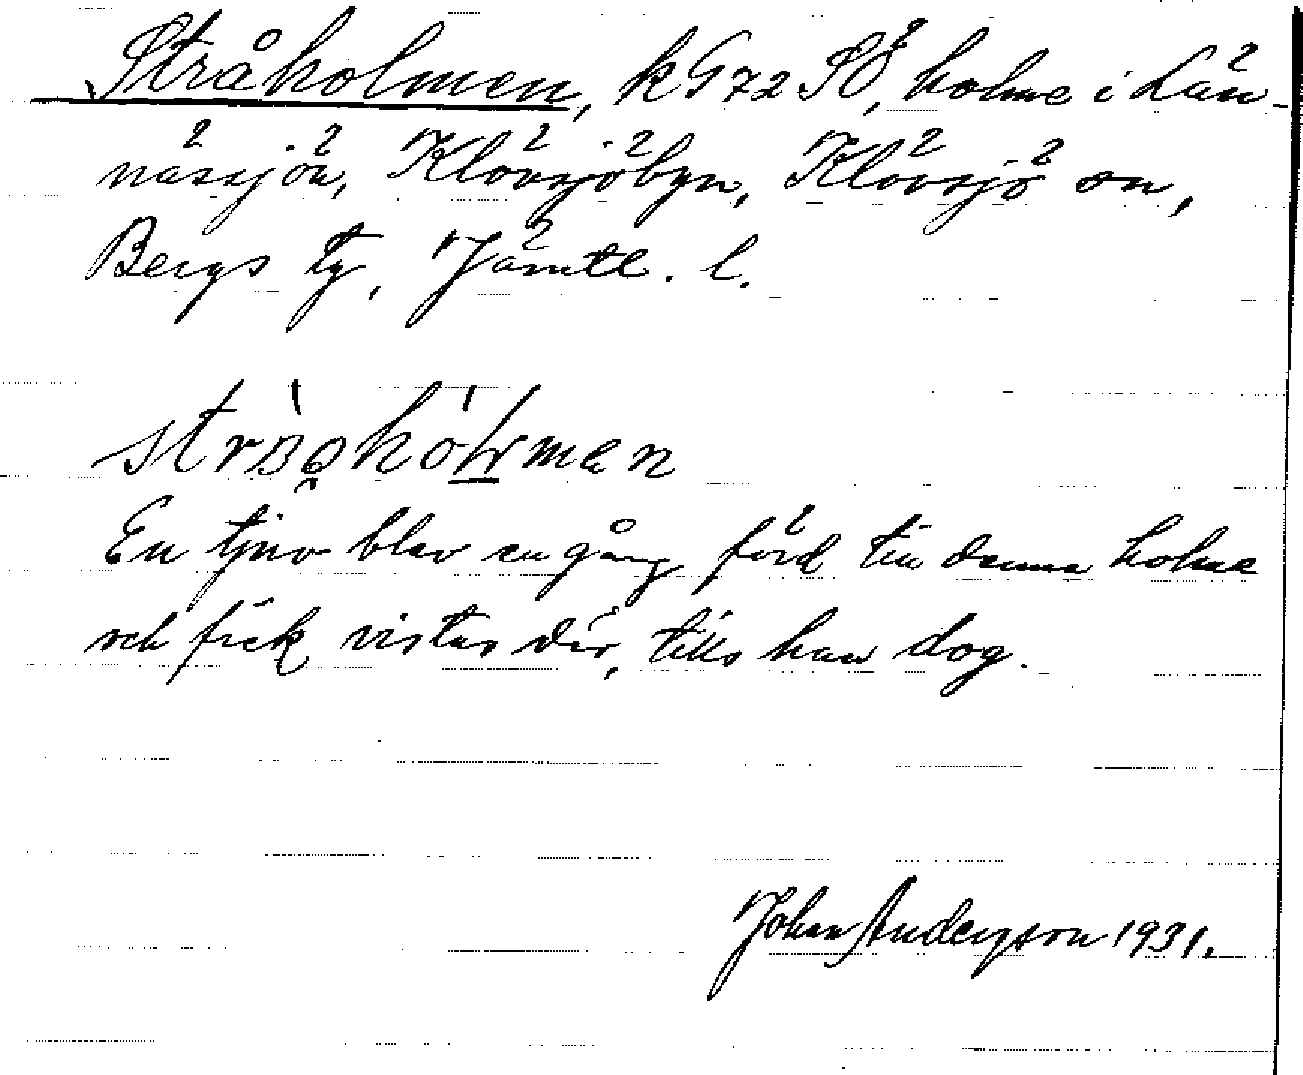 Stråholmen, k G72 SÖ, holme i Län-
nässjön, Klövsjöbyn, Klövsjö sn,
Bergs tg, Jämtl. l.
En tjuv blev en gång förd till denna holme
och fick vistas där, tills han dog.
Johan Anderson 1931.